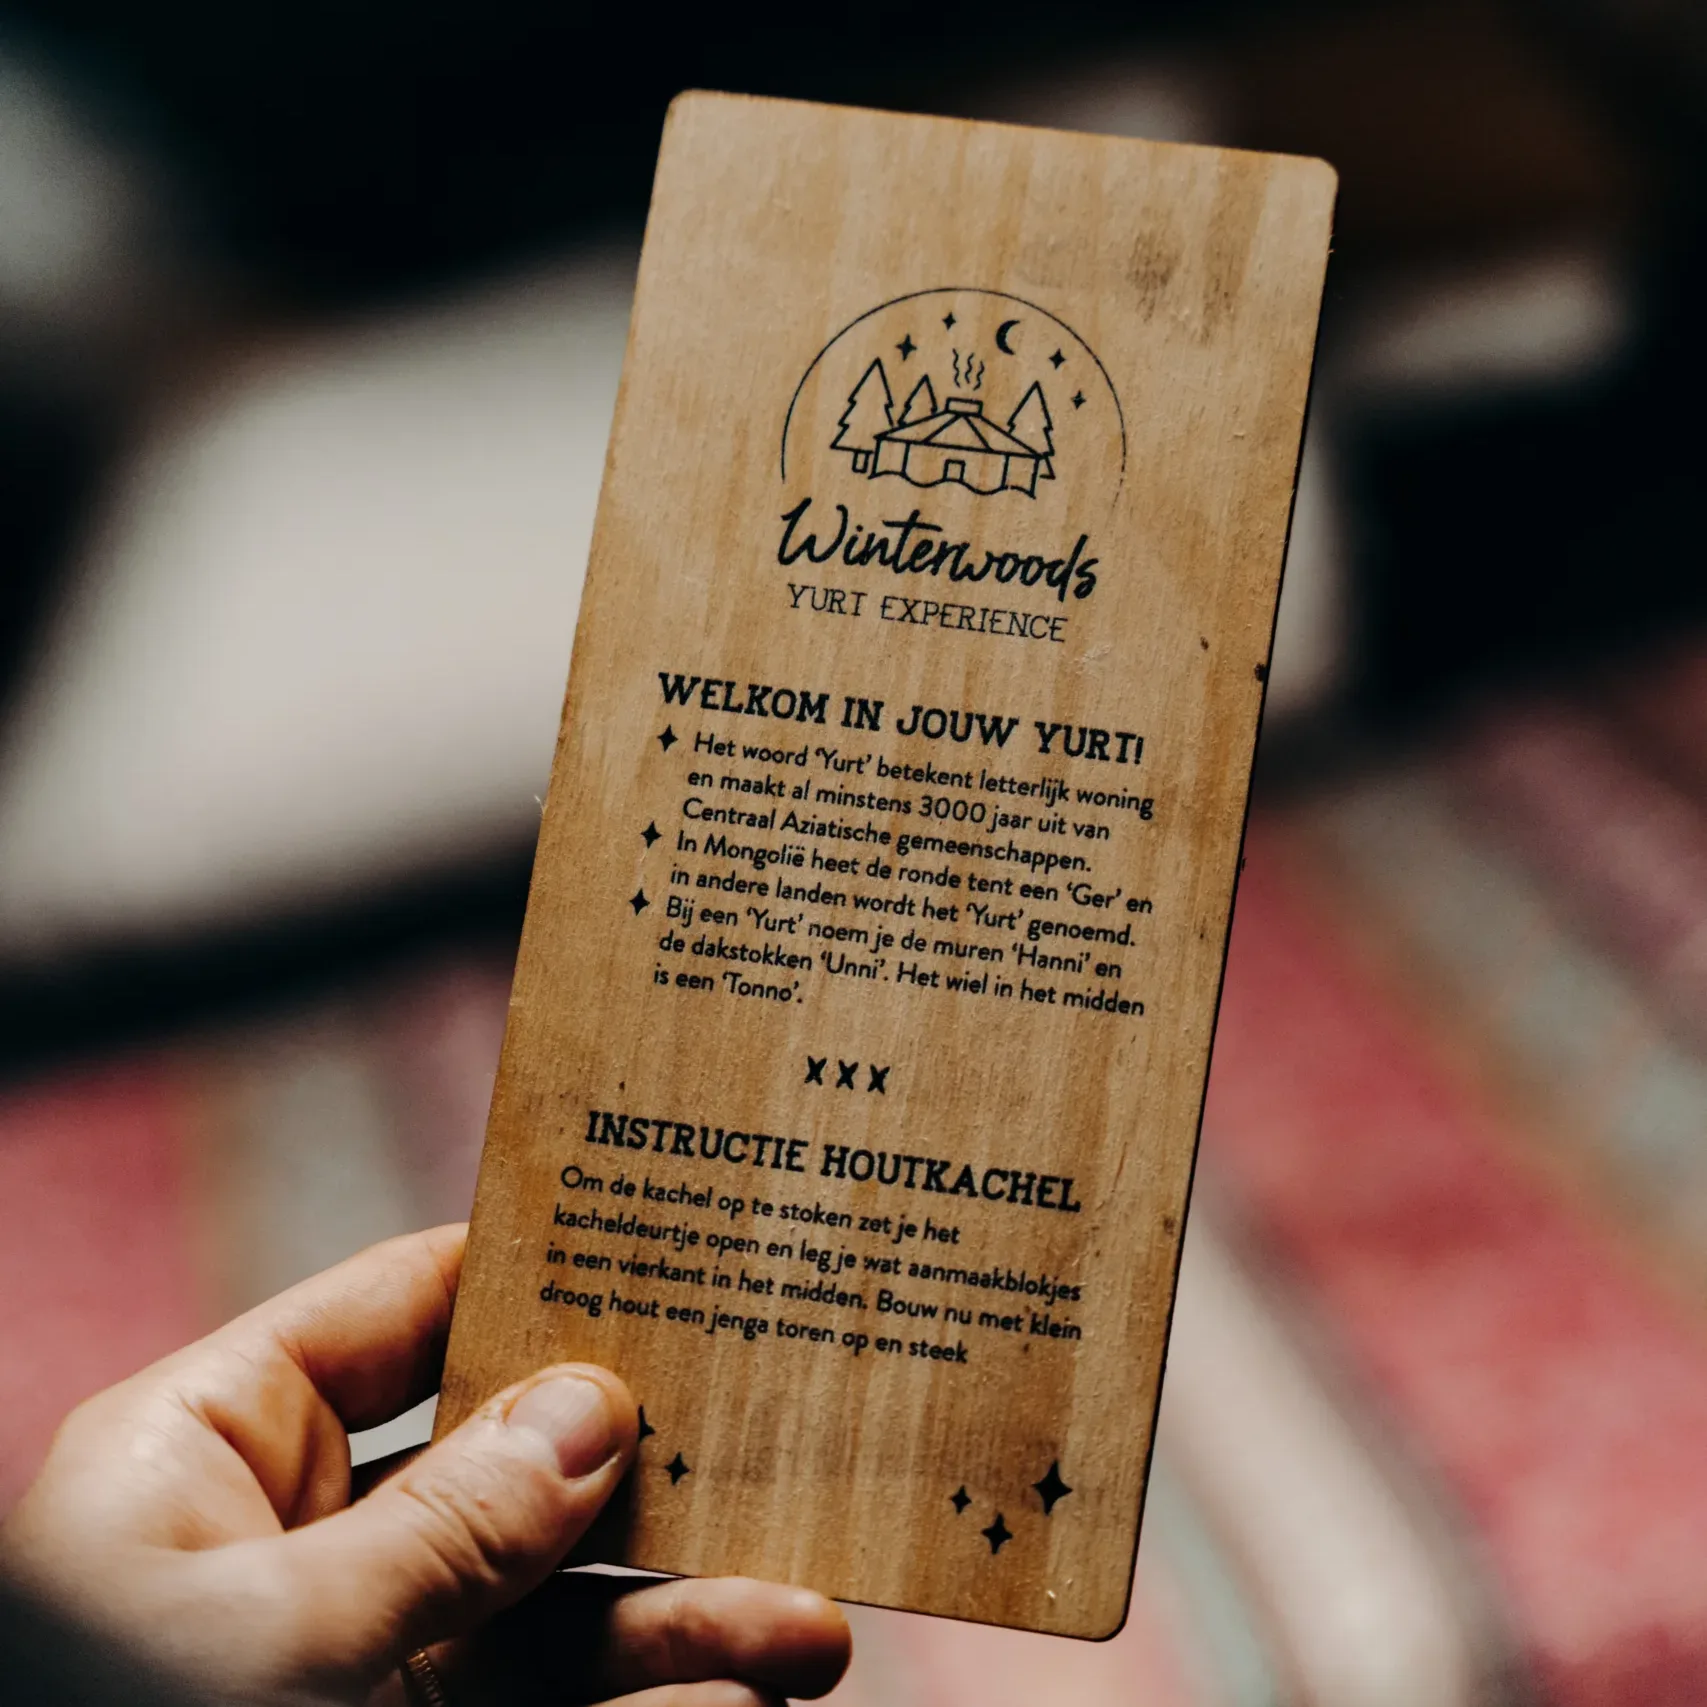 Winterwoods
YURT EXPERIENCE
WELKOM IN JOUW YURT!
Het woord ‘Yurt’ betekent letterlijk woning
en maakt al minstens 3000 jaar uit van
Centraal Aziatische gemeenschappen.
In Mongolië heet de ronde tent een ‘Ger’ en
in andere landen wordt het ‘Yurt’ genoemd.
Bij een ‘Yurt’ noem je de muren ‘Hanni’ en
de dakstokken ‘Unni’. Het wiel in het midden
is een ‘Tonno’.
XXX
INSTRUCTIE HOUTKACHEL
Om de kachel op te stoken zet je het
kacheldeurtje open en leg je wat aanmaakblokjes
in een vierkant in het midden. Bouw nu met klein
droog hout een jenga toren op en steek